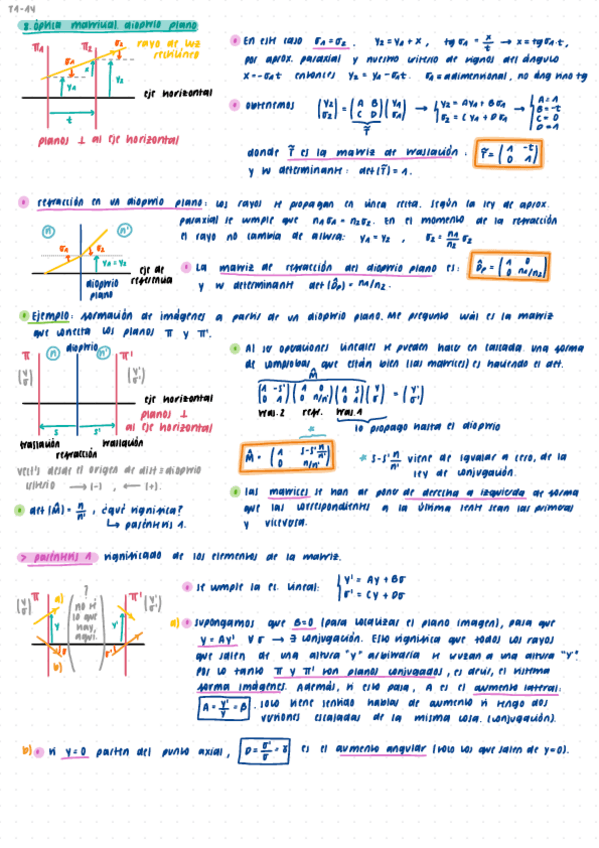 T1-14
8. óptica matricial. dioptrio plano
π1 π2 σ2 rayo de luz
rectilíneo
σ1 x
y1 y2
eje horizontal
t
planos ⊥ al eje horizontal
• En este caso σ1=σ2. y2=y1+x, tgσ=x/t → x=tgσ·t,
por aprox. paraxial y nuestro criterio de signos del ángulo
x=-σ1t. entonces y2=y1-σ1t. σ1=adimensional, no áng sino tg
• obtenemos (y2 σ2) = (A B C D)(y1 σ1) → {y2=Ay1+Bσ1 σ2=Cy1+Dσ1 → {A=1 B=-t C=0 D=1
T̂
donde T̂ es la matriz de traslación. T̂=(1 -t 0 1)
y su determinante: det(T̂)=1.
• refracción en un dioptrio plano: los rayos se propagan en línea recta. Según la ley de aprox.
paraxial se cumple que n1σ1=n2σ2. En el momento de la refracción
el rayo no cambia de altura: y1=y2, σ2=n1/n2 σ1
n n'
σ1 σ2
y1=y2
eje de
referencia
dioptrio
plano
• La matriz de refracción del dioptrio plano es: D̂p=(1 0 0 n1/n2)
y su determinante det(D̂p)=n1/n2.
• Ejemplo: formación de imágenes a partir de un dioptrio plano. Me pregunto cuál es la matriz
que conecta los planos π y π'.
π n dioptrio n' π'
(y σ) (y' σ')
eje horizontal
planos ⊥
al eje horizontal
s s'
traslación traslación
refracción
• Al ser operaciones lineales se pueden hacer en cascada. una forma
de comprobar que están bien (las matrices) es haciendo el det.
M̂
(1 -s' 0 1)(1 0 0 n/n')(1 s 0 1)(y σ) = (y' σ')
tras.2 refr. tras.1
lo propago hasta el dioptrio
M̂ = (1 s-s'n/n' 0 n/n')
* s-s'n/n' viene de igualar a cero, de la
ley de conjugación.
vect's desde el origen de dist=dioptrio
criterio → (-), ← (+).
• det(M̂)=n/n', ¿qué significa?
↳ paréntesis 1.
• las matrices se han de poner de derecha a izquierda de forma
que las correspondientes a la última lente sean las primeras
y viceversa.
> paréntesis 1 significado de los elementos de la matriz.
(y σ) π a) ? π' (y' σ')
no sé
lo que
hay
aquí.
y y'
σ σ'
b)
• se cumple la ec. lineal: {y'=Ay+Bσ σ'=Cy+Dσ
a) • supongamos que B=0 (para localizar el plano imagen), pasa que
y=Ay' ∀σ → ∃ conjugación. Eso significa que todos los rayos
que salen de una altura "y" arbitraria se cruzan a una altura "y'".
Por lo tanto π y π' son planos conjugados, es decir, el sistema
forma imágenes. Además, si esto pasa, A es el aumento lateral:
A=y'/y=β. solo tiene sentido hablar de aumento si tengo dos
versiones escaladas de la misma cosa. (conjugación).
b) • si y=0 parten del punto axial, D=σ'/σ=γ es el aumento angular (solo los que salen de y=0).